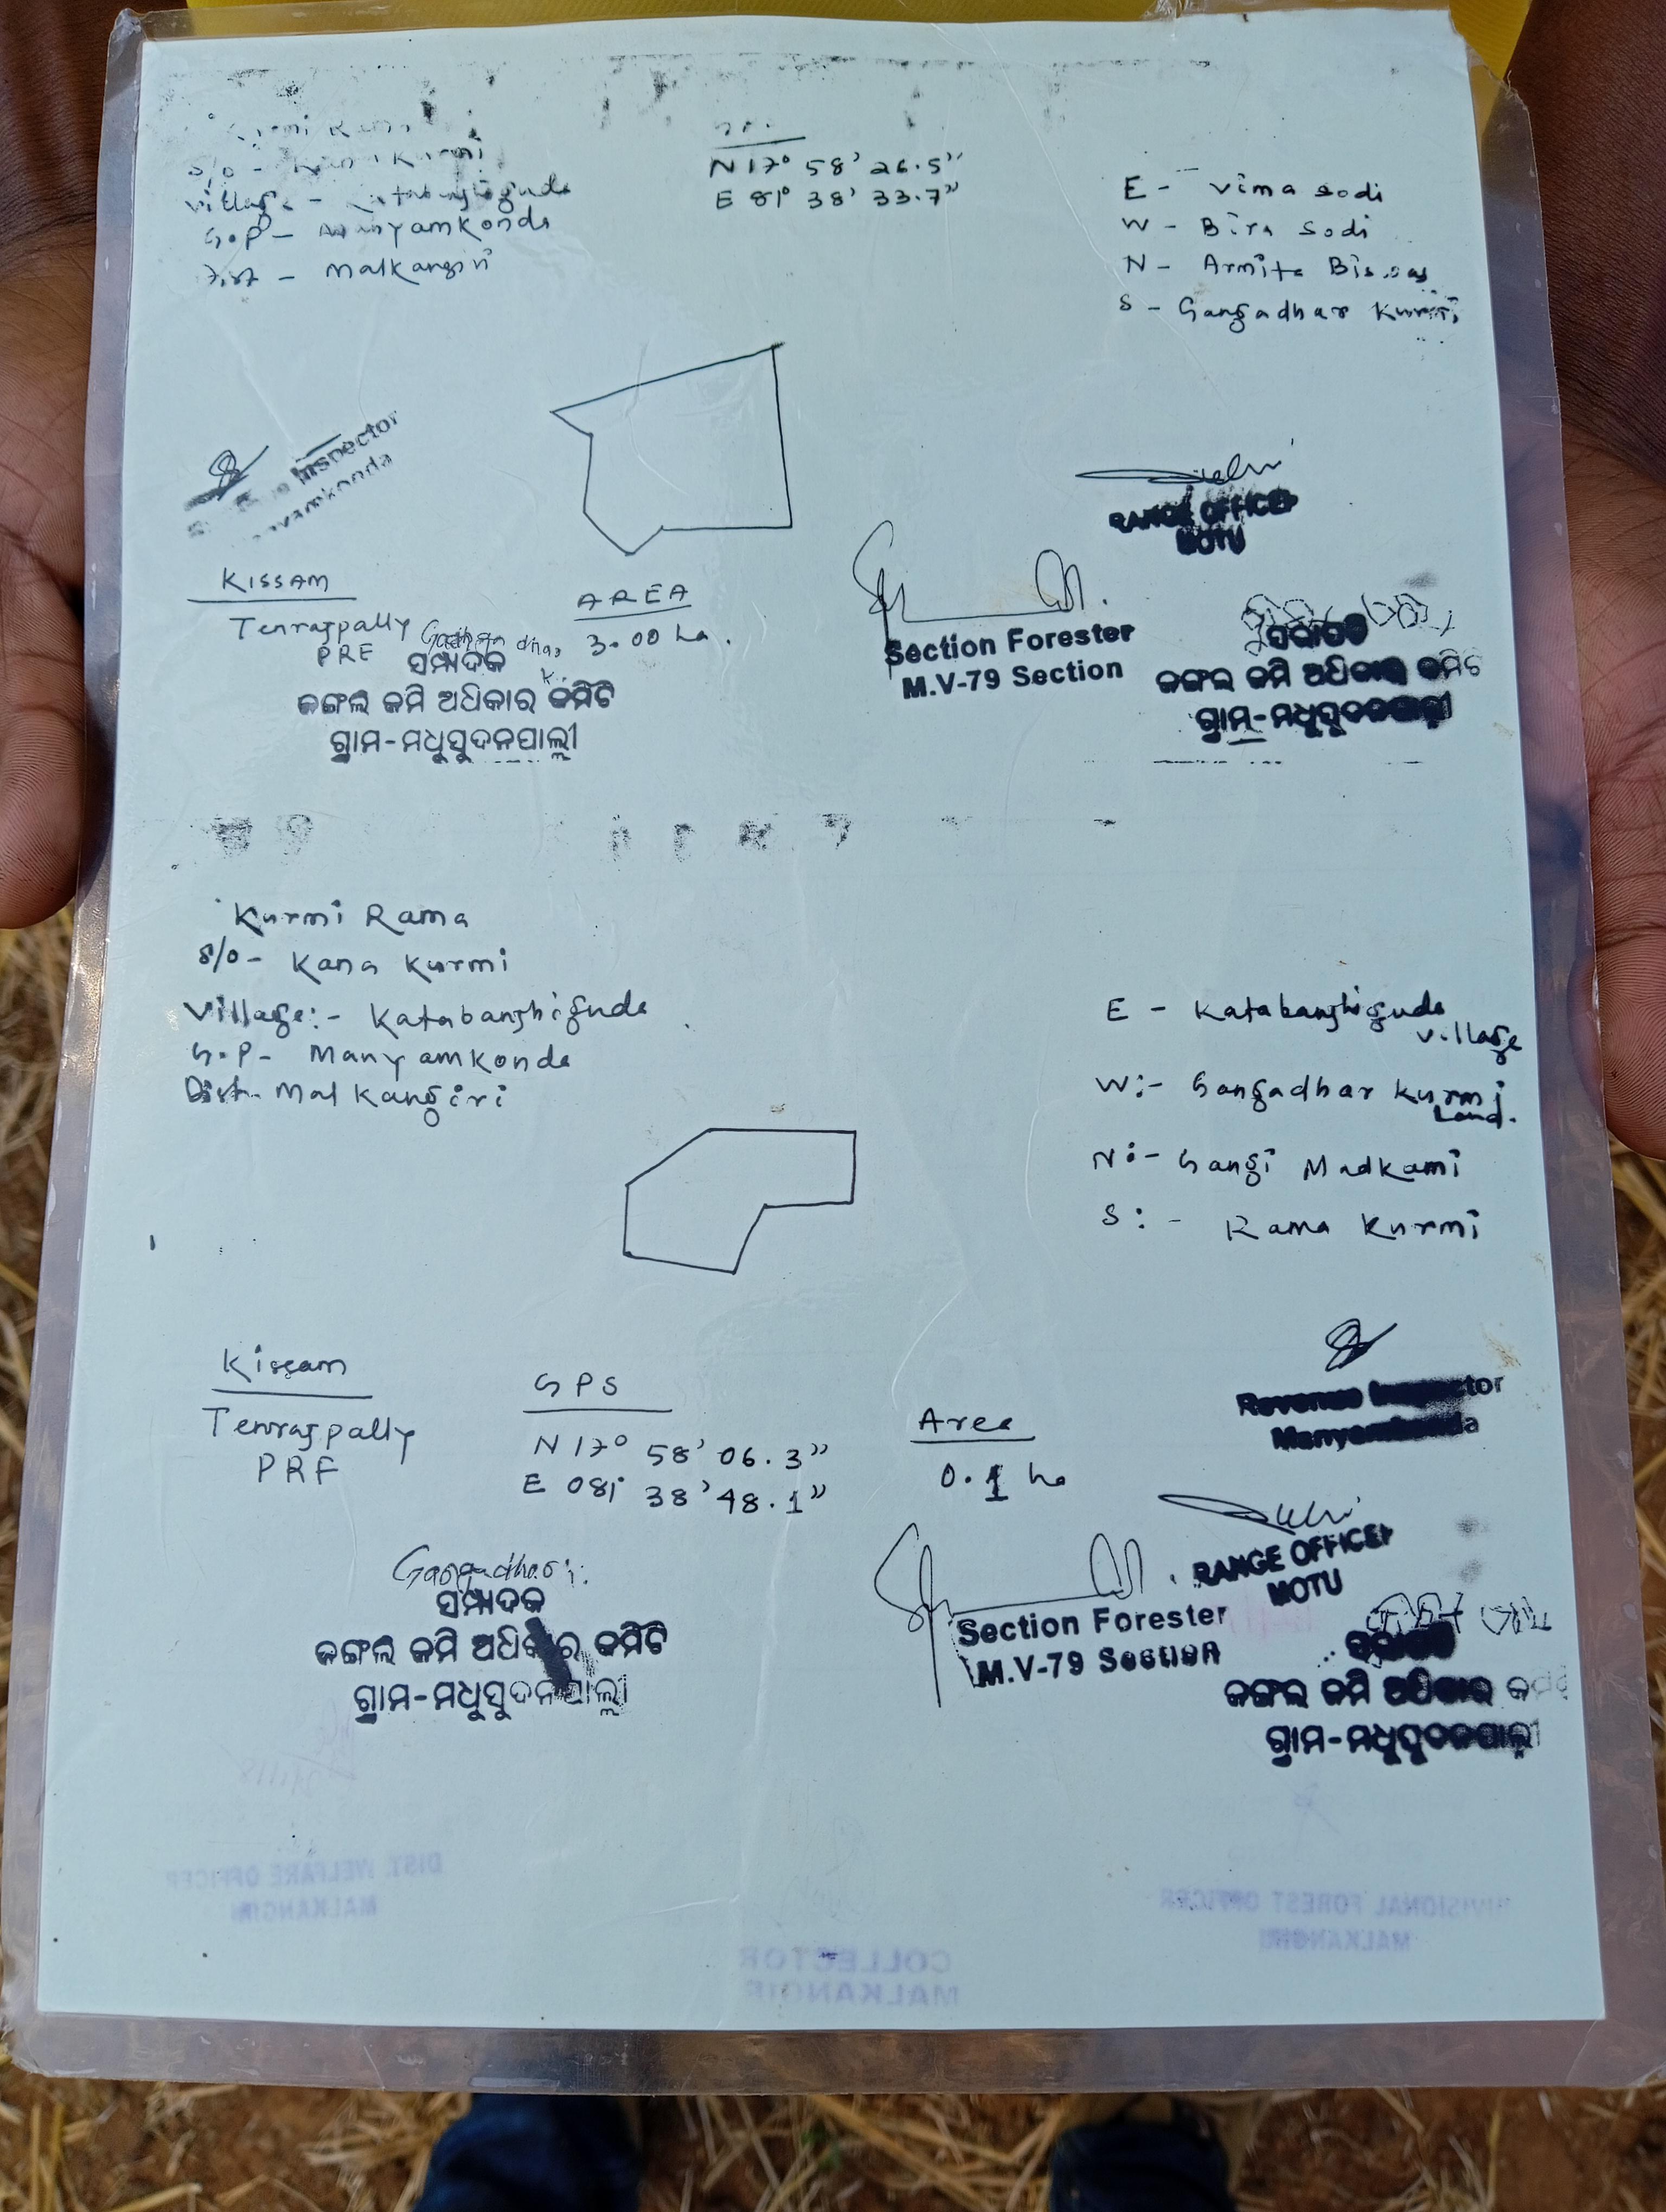 Kurmi Rama
S/o - Kana Kurmi
Village - Katabanshiguda
G.P - Manyamkonda
Dist - Malkangiri
N 17° 58' 26.5"
E 81° 38' 33.7"
E - Vima Sodi
W - Bira Sodi
N - Armita Biswas
S - Gangadhar Kurmi
Inspector
RANGE OFFICER
MOTU
KISSAM
Tenraspally
PRF
AREA
3.00 ha.
Section Forester
M.V-79 Section
ସମ୍ପାଦକ
ଜଙ୍ଗଲ ଜମି ଅଧିକାର କମିଟି
ଗ୍ରାମ-ମଧୁସୁଦନପାଲ୍ଲୀ
ସଭାପତି
ଜଙ୍ଗଲ ଜମି ଅଧିକାର କମିଟି
ଗ୍ରାମ-ମଧୁସୁଦନପାଲ୍ଲୀ
Kurmi Rama
S/o - Kana Kurmi
Village:- Katabanshiguda
G.P- Manyamkonda
Dist- Malkangiri
E - Katabanshiguda
village
W:- Gangadhar Kurmi
Land.
N:- Gangi Madkami
S:- Rama Kurmi
Kissam
Tenraspally
PRF
GPS
N 17° 58' 06.3"
E 081° 38' 48.1"
Area
0.1 ha
Revenue Inspector
Manyamkonda
RANGE OFFICER
MOTU
Section Forester
M.V-79 Section
Gangadhar
ସମ୍ପାଦକ
ଜଙ୍ଗଲ ଜମି ଅଧିକାର କମିଟି
ଗ୍ରାମ-ମଧୁସୁଦନପାଲ୍ଲୀ
ସଭାପତି
ଜଙ୍ଗଲ ଜମି ଅଧିକାର
ଗ୍ରାମ-ମଧୁସୁଦନପାଲ୍ଲୀ
DIST. WELFARE OFFICER
MALKANGIRI
DIVISIONAL FOREST OFFICER
MALKANGIRI
COLLECTOR
MALKANGIRI